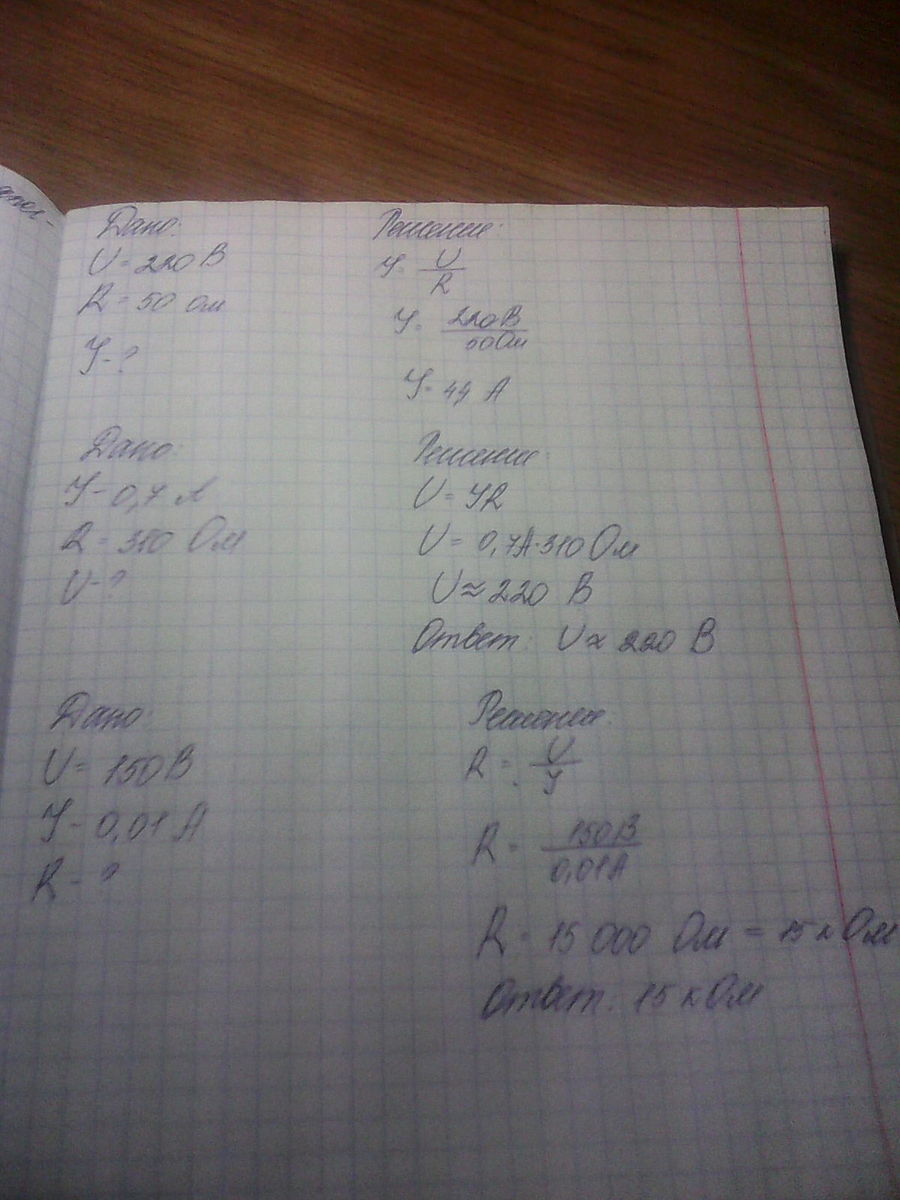 Дано:
U = 220 В
R = 50 Ом
У - ?
Решение:
У = U / R
У = 220 В / 50 Ом
У = 44 А
Дано:
У - 0,7 А
R = 310 Ом
U - ?
Решение:
U = УR
U = 0,7А·310 Ом
U ≈ 220 В
Ответ: U ≈ 220 В
Дано:
U = 150 В
У - 0,01 А
R - ?
Решение:
R = U / У
R = 150 В / 0,01 А
R = 15 000 Ом = 15 кОм
Ответ: 15 кОм